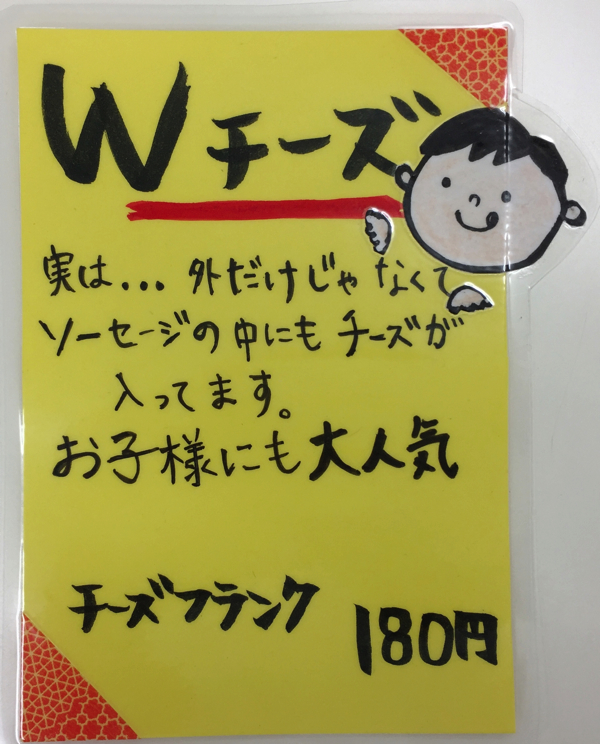 Wチーズ
実は...外だけじゃなくて
ソーセージの中にもチーズが
入ってます。
お子様にも大人気
チーズフランク
180円